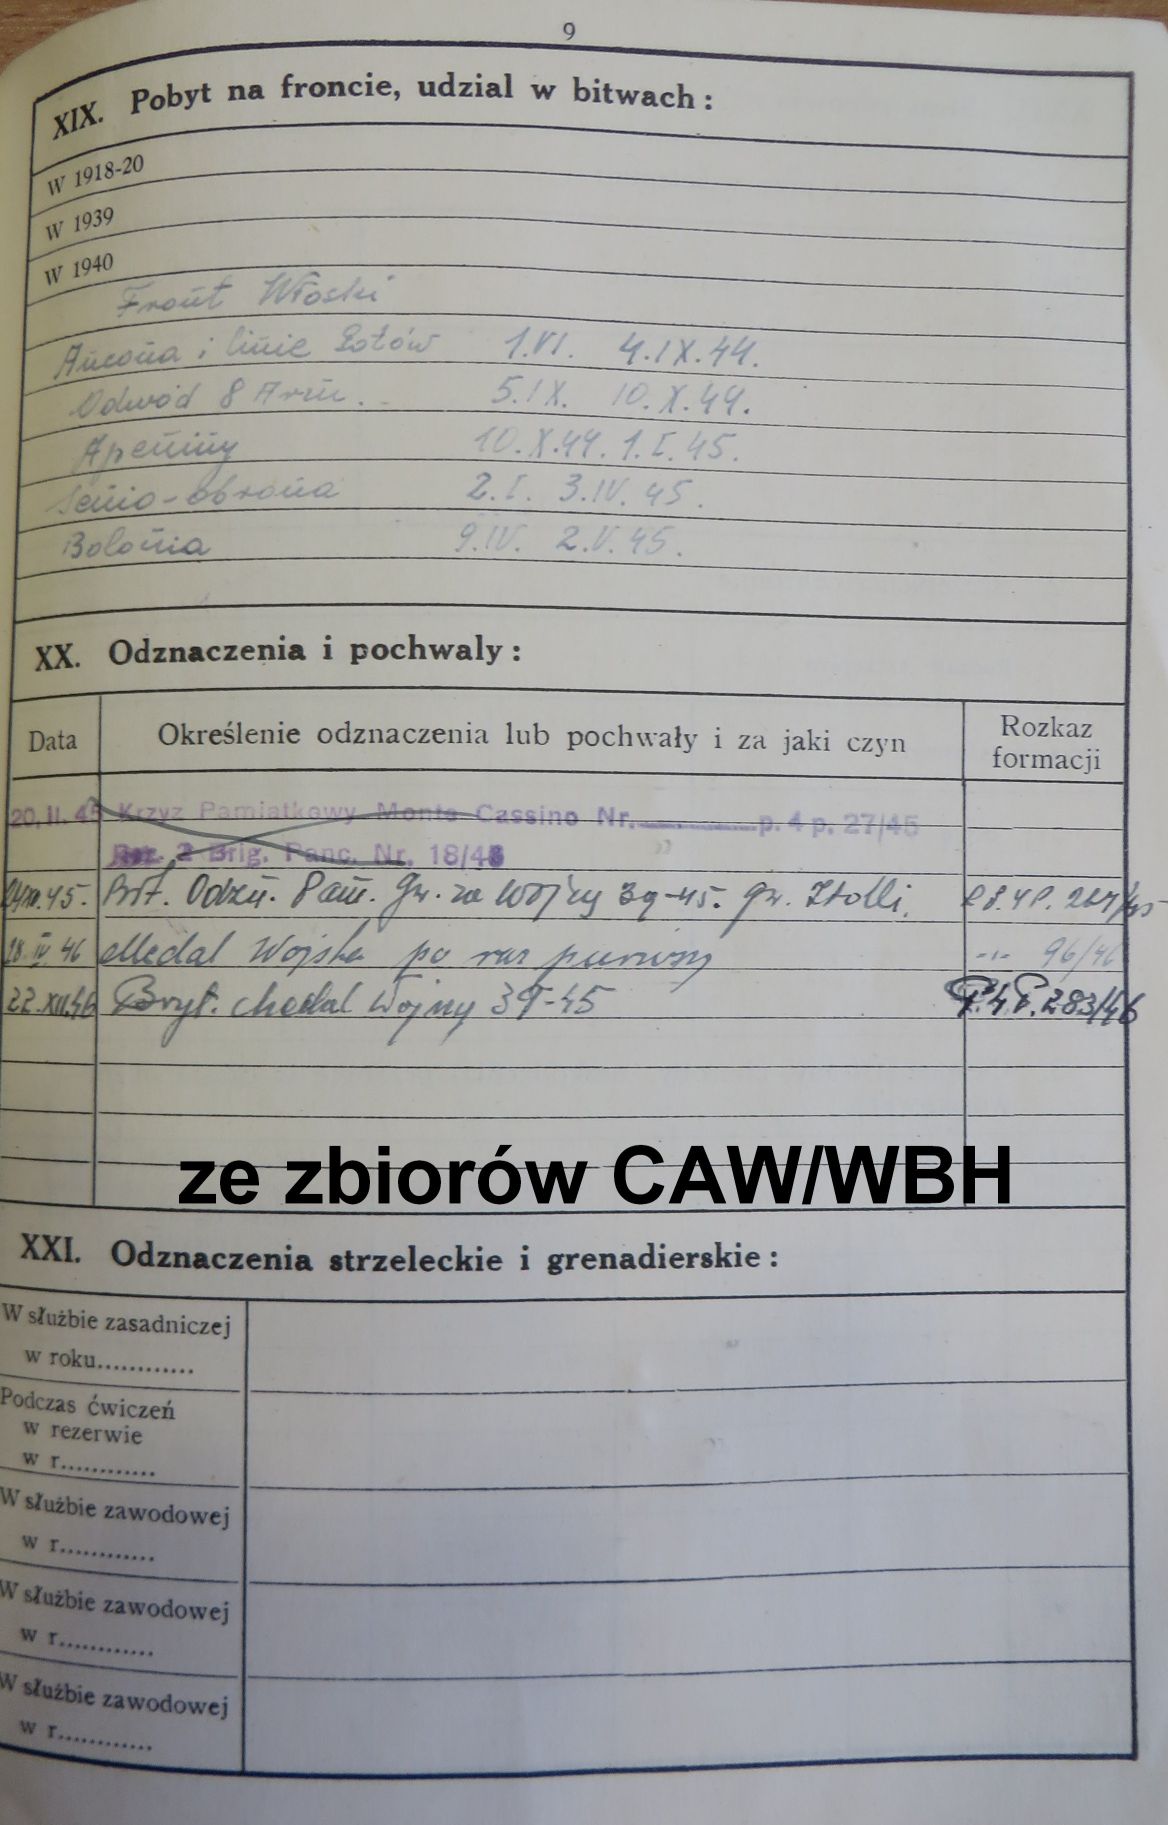 9
XIX. Pobyt na froncie, udzial w bitwach :
W 1918-20
W 1939
W 1940
Front Włoski
Ancona i linie Gotów 1.VI. 4.IX.44.
Odwód 8 Arm. 5.IX. 10.X.44.
Apeniny 10.X.44. 1.I.45.
Senio-obrona 2.I. 3.IV.45.
Bolonia 9.IV. 2.V.45.
XX. Odznaczenia i pochwaly :
Data Określenie odznaczenia lub pochwały i za jaki czyn Rozkaz formacji
20. II. 45 Krzyz Pamiatkowy Monte Cassino Nr. p. 4 p. 27/45
Roz. 2 Brig. Panc. Nr. 18/46
45. Bryt. Odzn. Pam. Gw. za Wojny 39-45. Gw. Italii.
18.IV.46 Medal Wojska po raz pierwszy -"- 96/46
22.XII.46 Bryt. Medal Wojny 39-45 R.4.P. 283/46
ze zbiorów CAW/WBH
XXI. Odznaczenia strzeleckie i grenadierskie :
W służbie zasadniczej
w roku............
Podczas ćwiczeń
w rezerwie
w r............
W służbie zawodowej
w r............
W służbie zawodowej
w r............
W służbie zawodowej
w r............